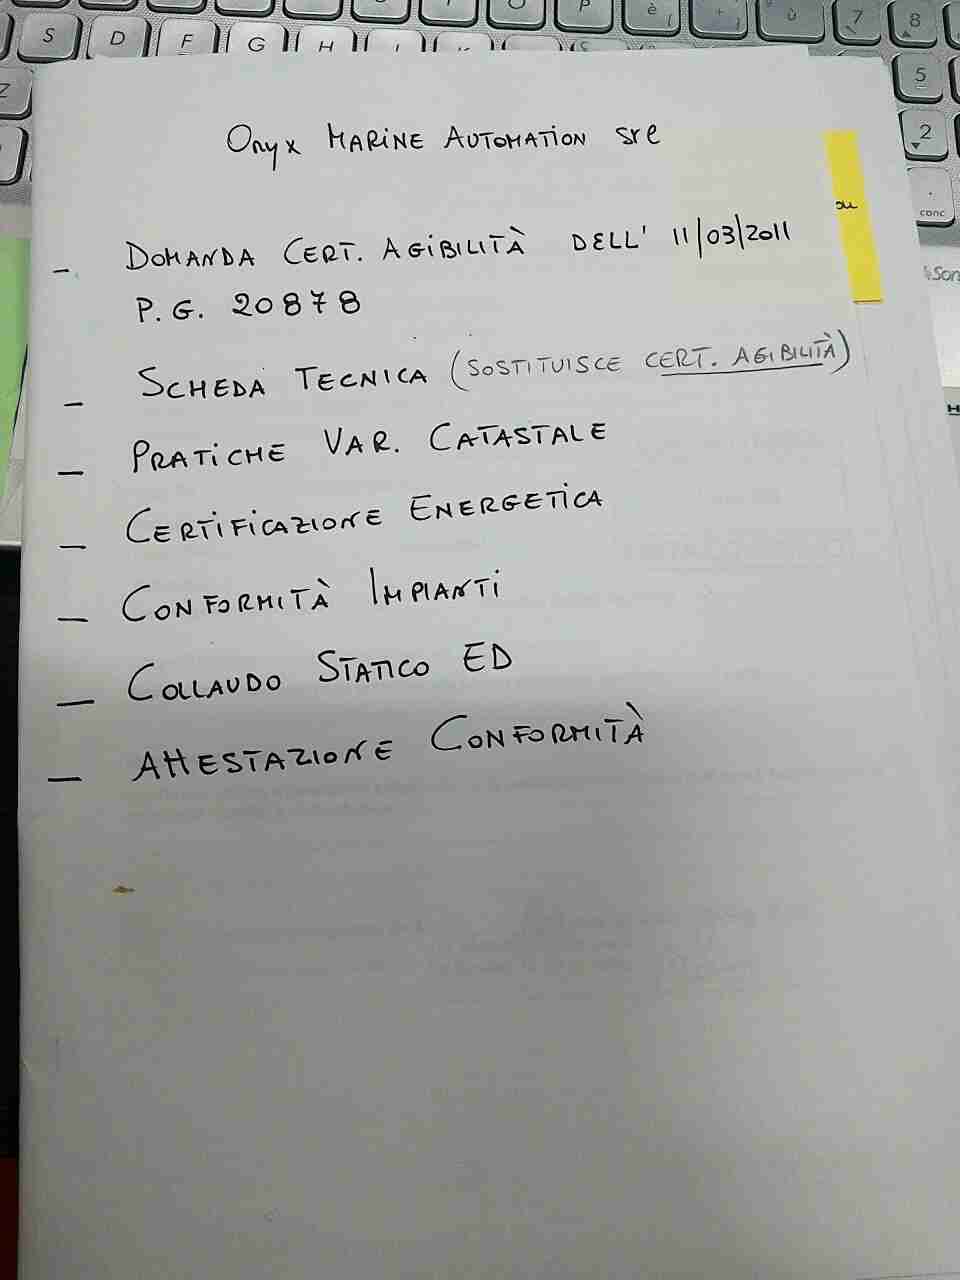 S D F G H P è + ù 7 8
Z 5
2
.
canc
Onyx MARINE AUTOMATION srl
- DOMANDA CERT. AGIBILITÀ DELL' 11/03/2011
P.G. 20878
- SCHEDA TECNICA (SOSTITUISCE CERT. AGIBILITÀ)
- PRATICHE VAR. CATASTALE
- CERTIFICAZIONE ENERGETICA
- CONFORMITÀ IMPIANTI
- COLLAUDO STATICO ED
- ATTESTAZIONE CONFORMITÀ